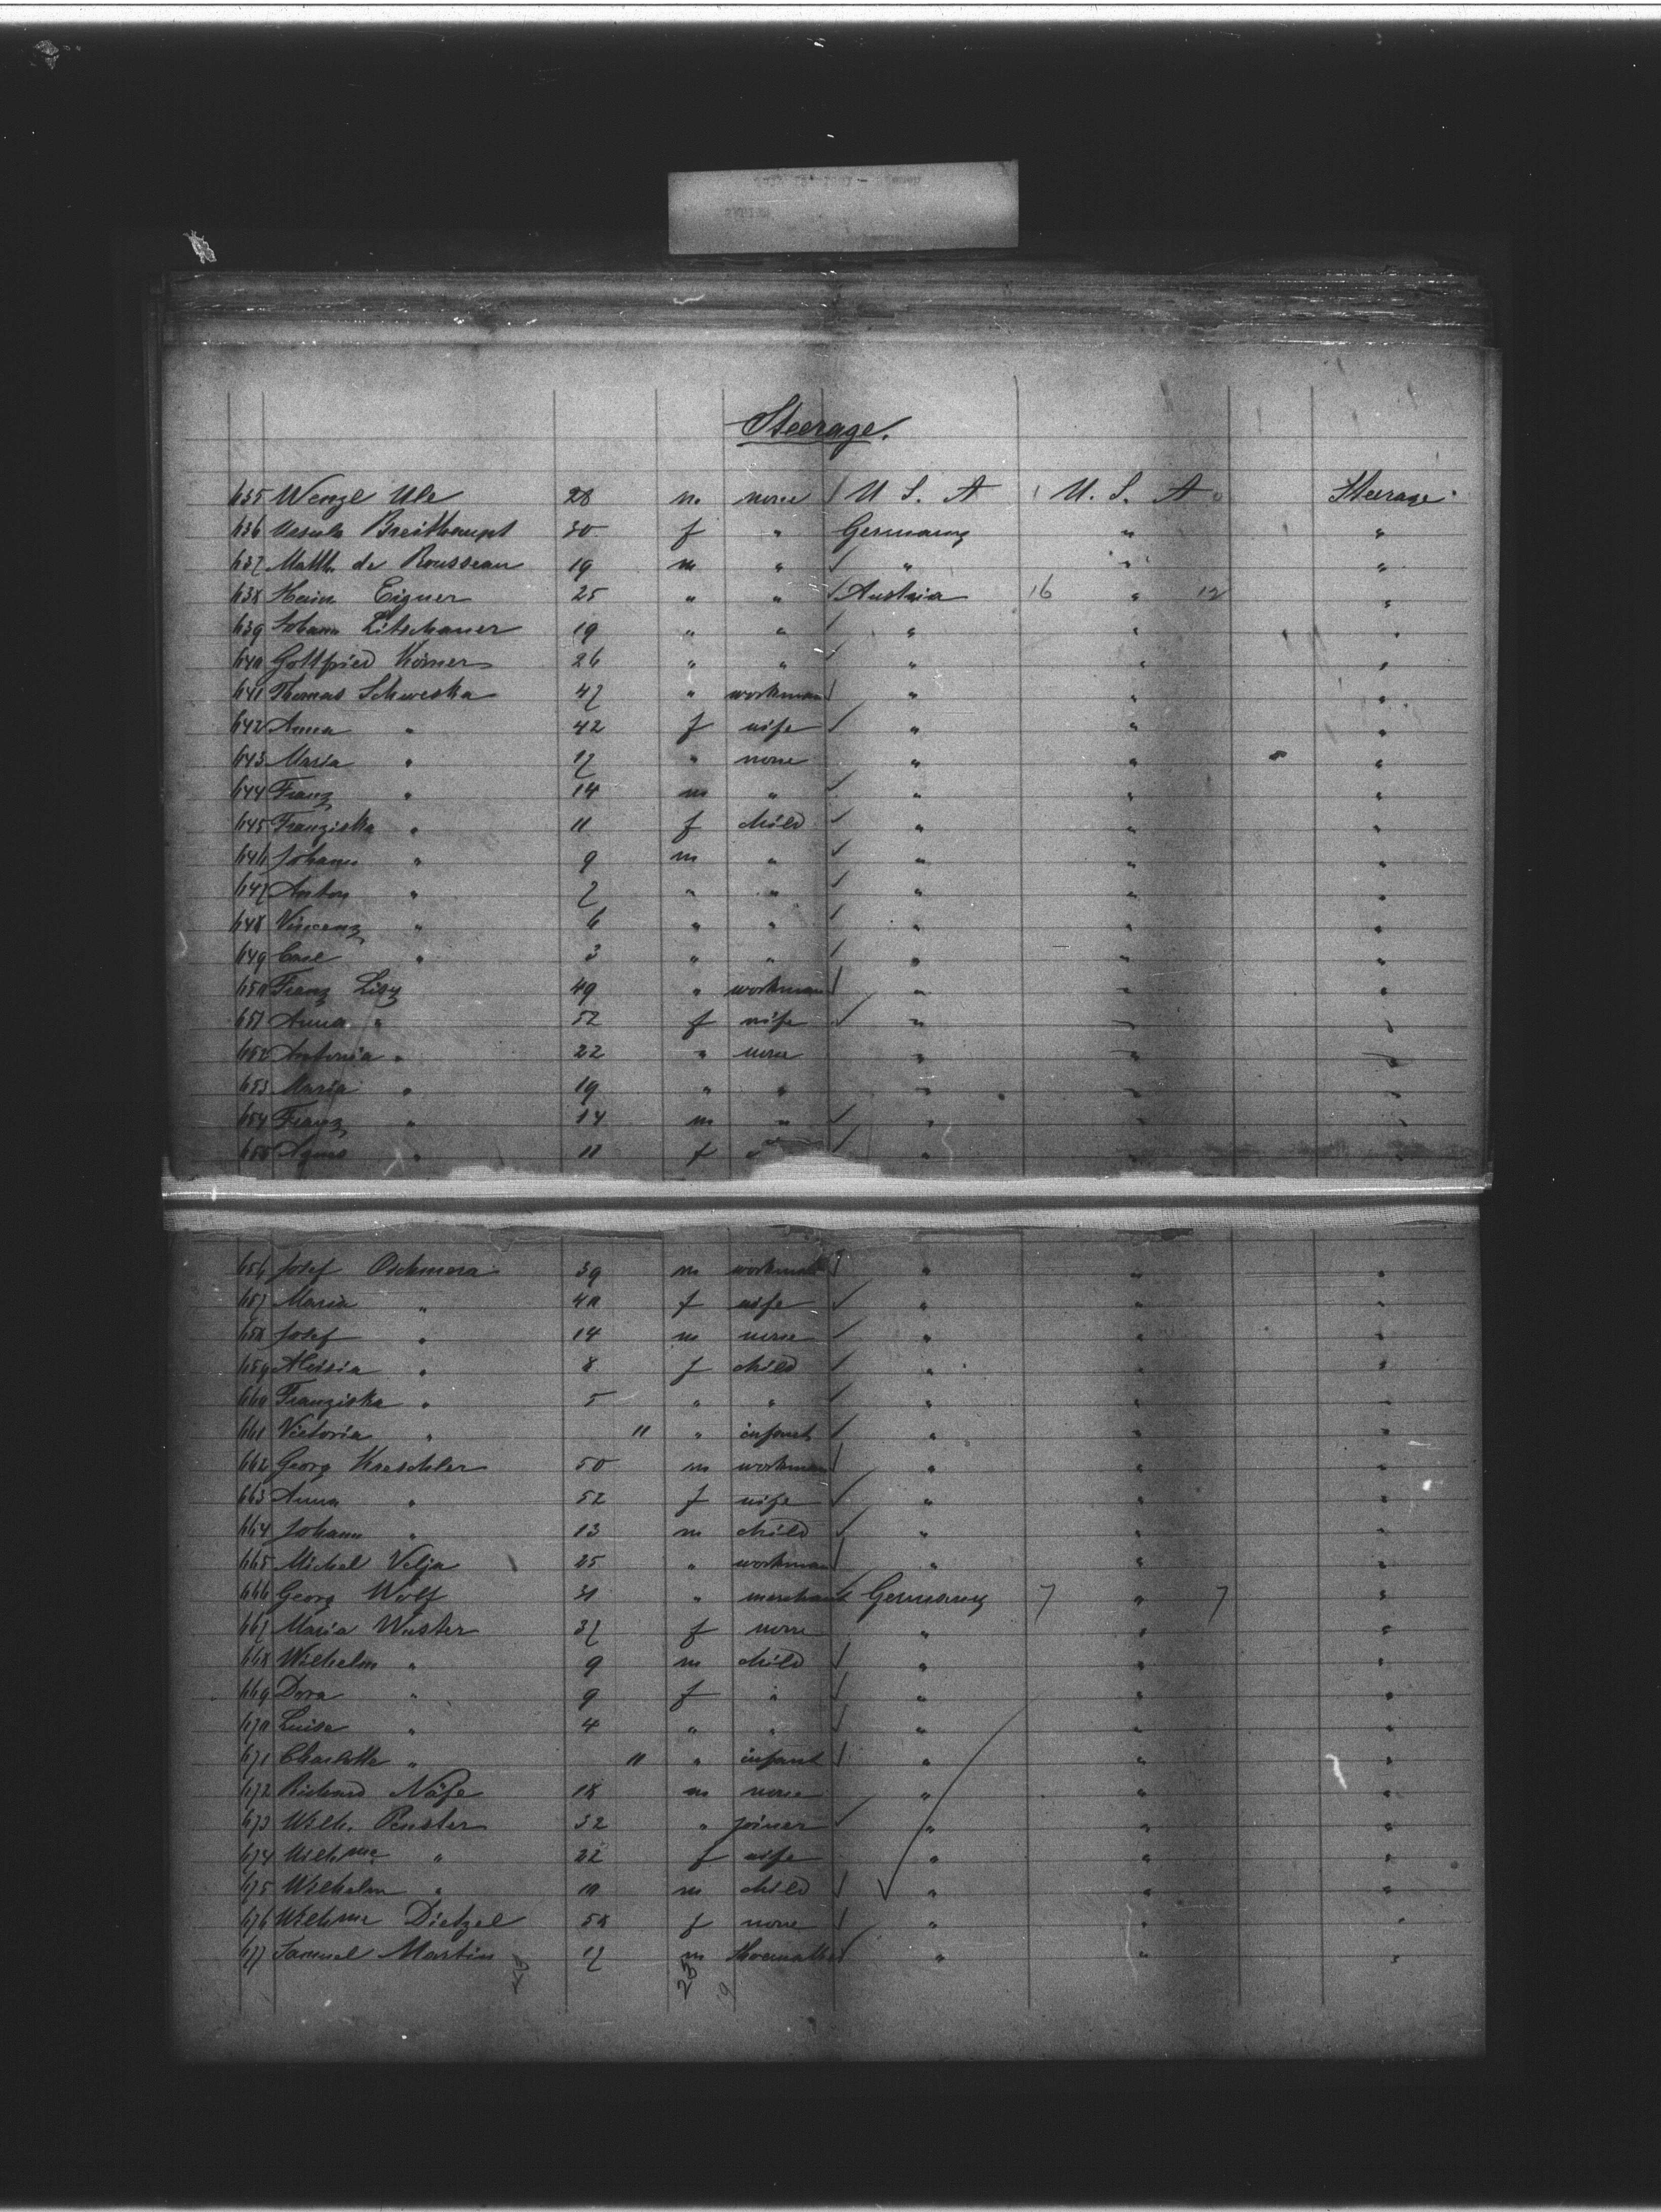 Steerage.
635 Wenzl Ule 28 m none U S. A U. S. A Steerage
636 Ursula Breithaupt 30 f " Germany " "
637 Matth. de Rousseau 19 m " " " "
638 Heinr. Eigner 25 " " Austria 16 " 12 "
639 Johann Litschauer 19 " " " " "
640 Gottfried Körner 26 " " " " "
641 Thomas Schweska 47 " workman " " "
642 Anna " 42 f wife " " "
643 Maria " 17 " none " " "
644 Franz " 14 m " " " "
645 Franziska " 11 f child " " "
646 Johann " 9 m " " " "
647 Anton " 7 " " " " "
648 Vincenz " 6 " " " " "
649 Carl " 3 " " " " "
650 Franz Lisy 49 " workman " " "
651 Anna " 52 f wife " " "
652 Antonia " 22 " none " " "
653 Maria " 19 " " " " "
654 Franz " 14 m " " " "
655 Agnes " 11 f " " "
656 Josef Oschmera 39 m workman " " "
657 Maria " 40 f wife " " "
658 Josef " 14 m none " " "
659 Aloisia " 8 f child " " "
660 Franziska " 5 " " " " "
661 Victoria " 11 " infant " " "
662 Georg Kreschler 50 m workman " " "
663 Anna " 52 f wife " " "
664 Johann " 13 m child " " "
665 Michel Velja 25 " workman " " "
666 Georg Wolf 31 " merchant Germany 7 " 7 "
667 Maria Wuster 37 f none " " "
668 Wilhelm " 9 m child " " "
669 Dora " 9 f " " " "
670 Luise " 4 " " " " "
671 Charlotte " 11 " infant " " "
672 Richard Näfe 18 m none " " "
673 Wilh. Penster 32 " joiner " " "
674 Wilhme " 22 f wife " " "
675 Wilhelm " 10 m child " " "
676 Wilhme Dietzel 58 f none " " "
677 Samuel Martin 17 m " " "
25 19